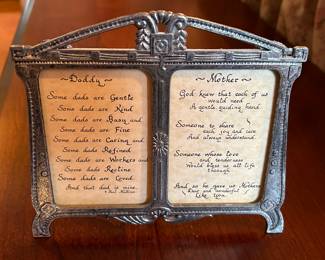 ~Daddy~
Some dads are Gentle
Some dads are Kind
Some dads are Busy and
Some dads are Fine
Some dads are Caring and
Some dads Refined
Some dads are Workers and
Some dads Recline
Some dads are Loved
And that dad is mine.
~Mother~
God knew that each of us
would need
A gentle, guiding hand
Someone to share
each joy and care
And always understand.
Someone whose love
and tenderness
Would bless us all life
through
And so he gave us Mothers
Dear and wonderful
Like You.